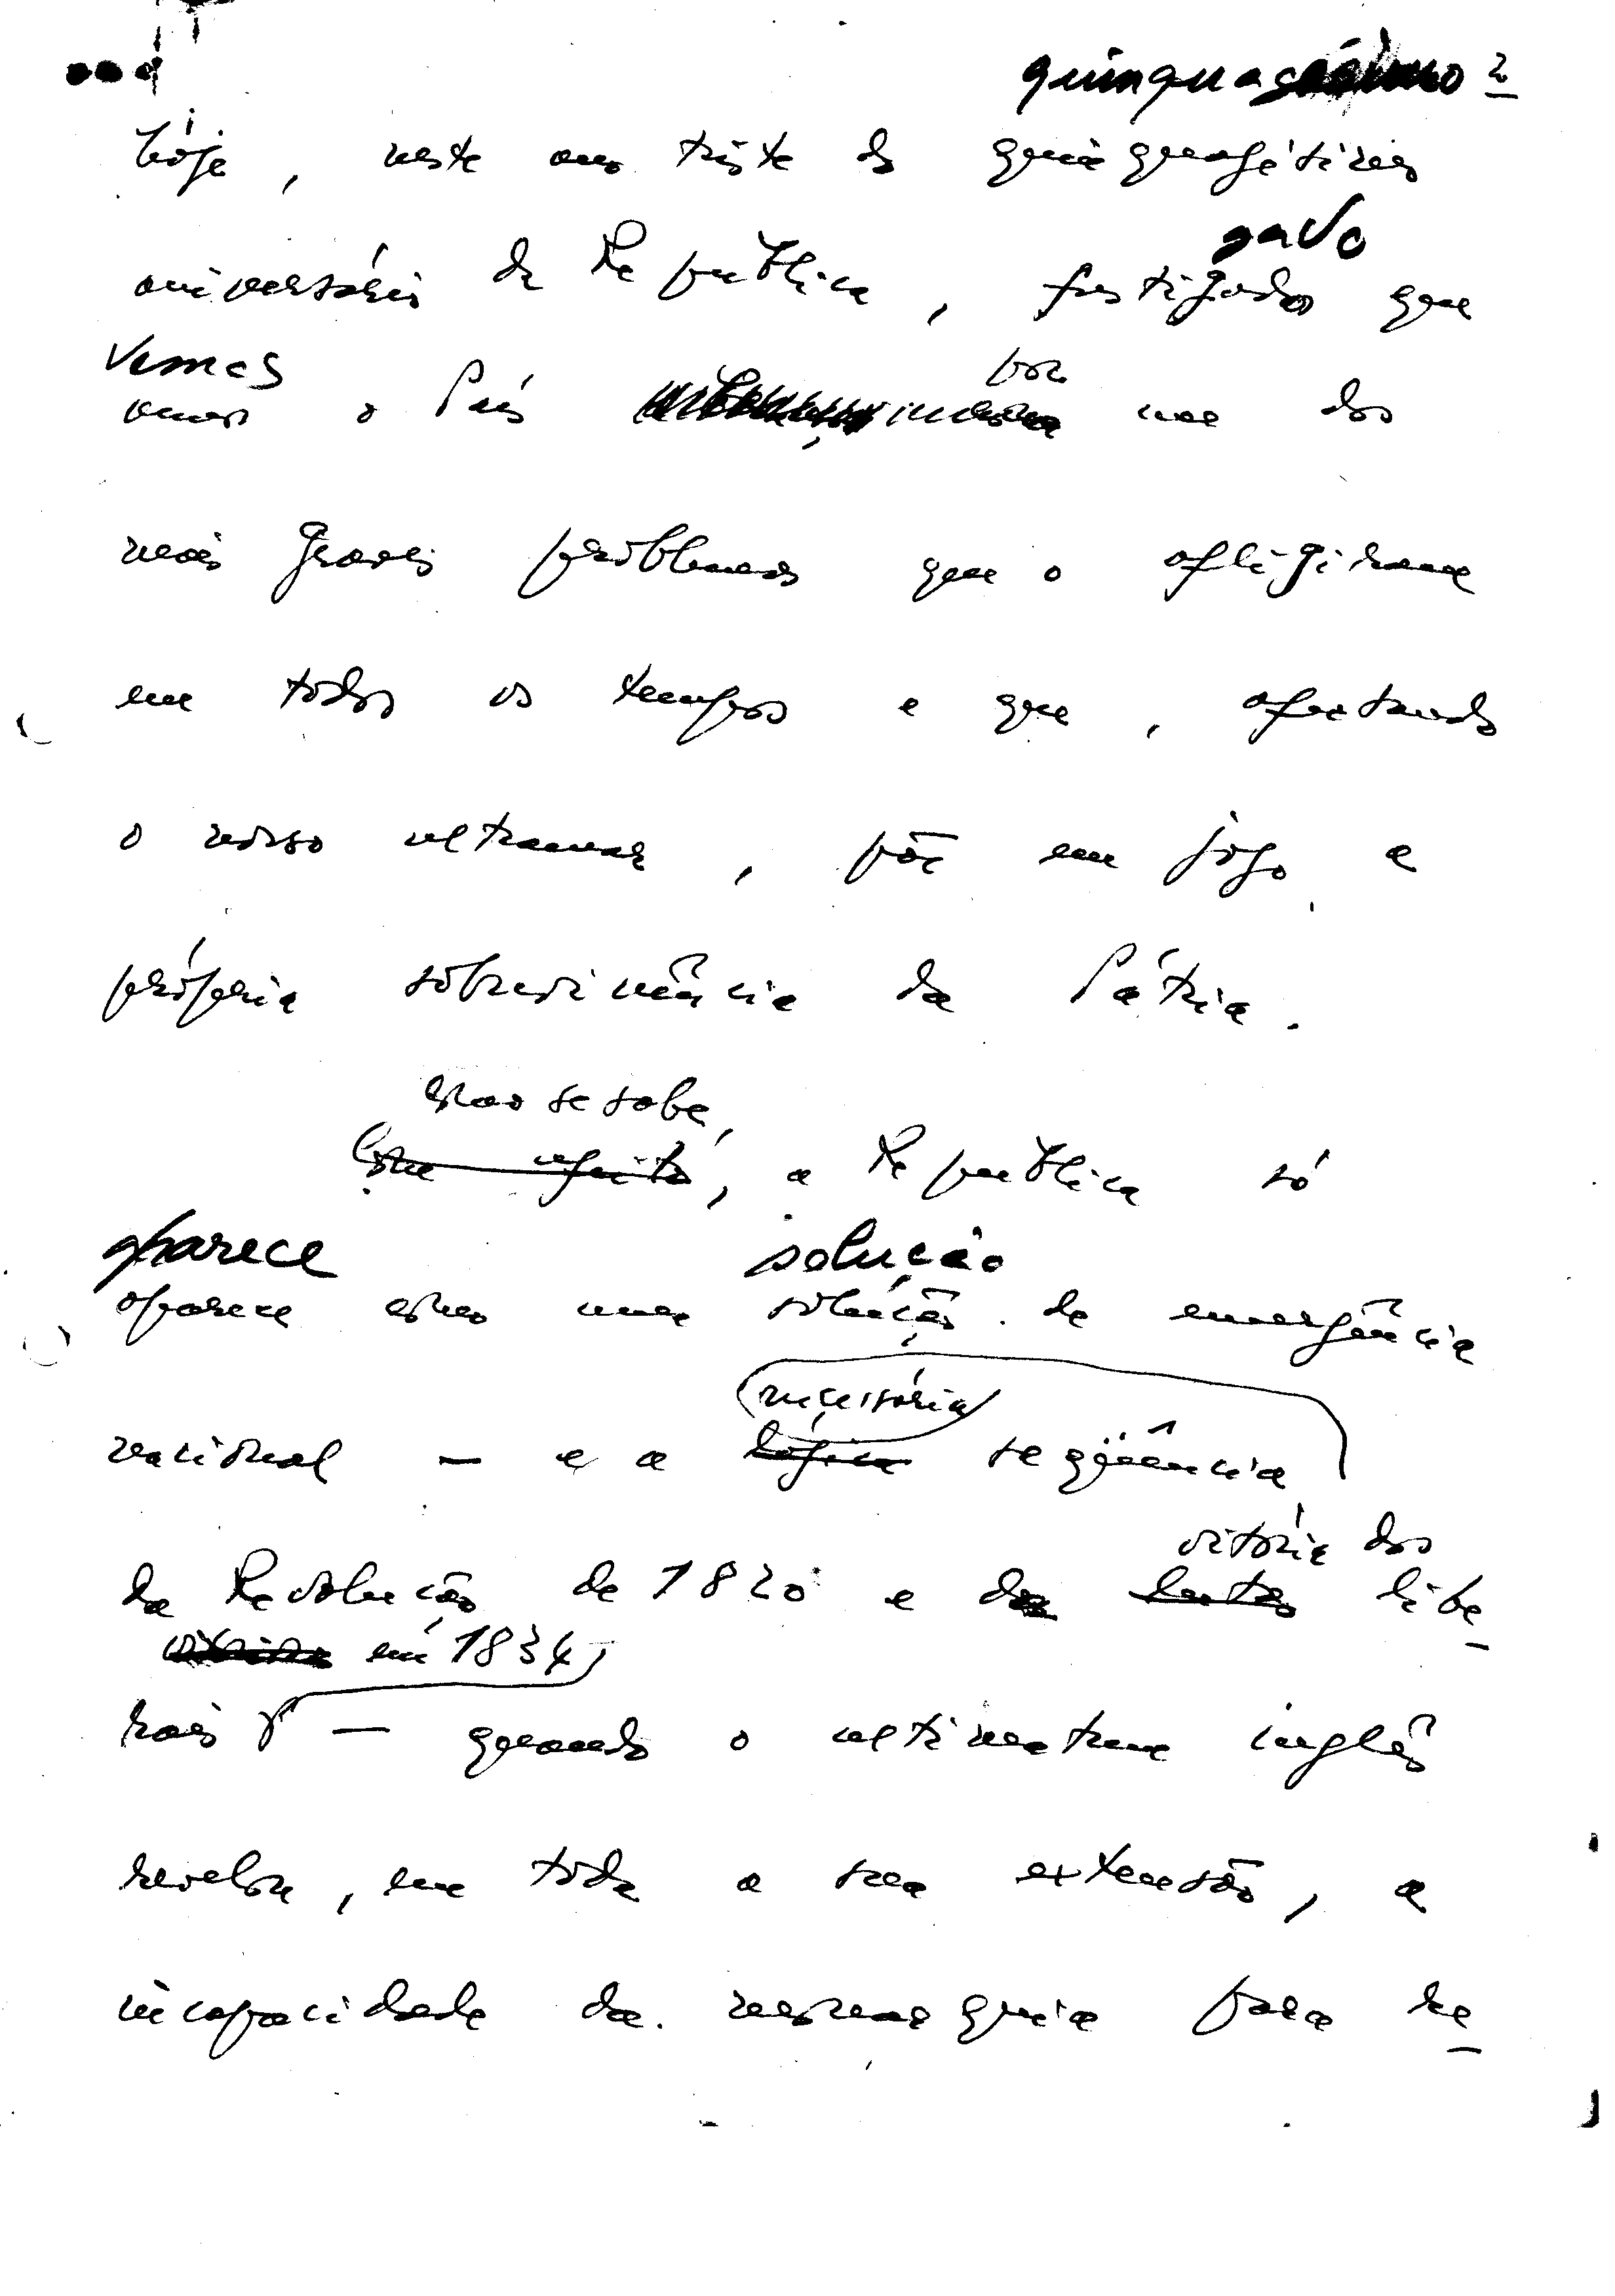 quinquagésimo 2
hóje, neste ano triste do quinquagésimo
gado
aniversário da República, fustigado que
vemos
vemos o País por um dos
mais graves problemas que o afligiram
em todos os tempos e que, afectando
o nosso ultramar, põe em jogo a
própria sobrevivência da Pátria.
como se sabe,
a República só
aparece solução
aparece como uma solução de emergência
necessária
nacional — e a lógica seqüência
vitória dos
da Revolução de 1820 e da lutas libe
em 1834,
rais — quando o ultimatum inglês
revelou, em toda a sua extensão, a
incapacidade da monarquia para re